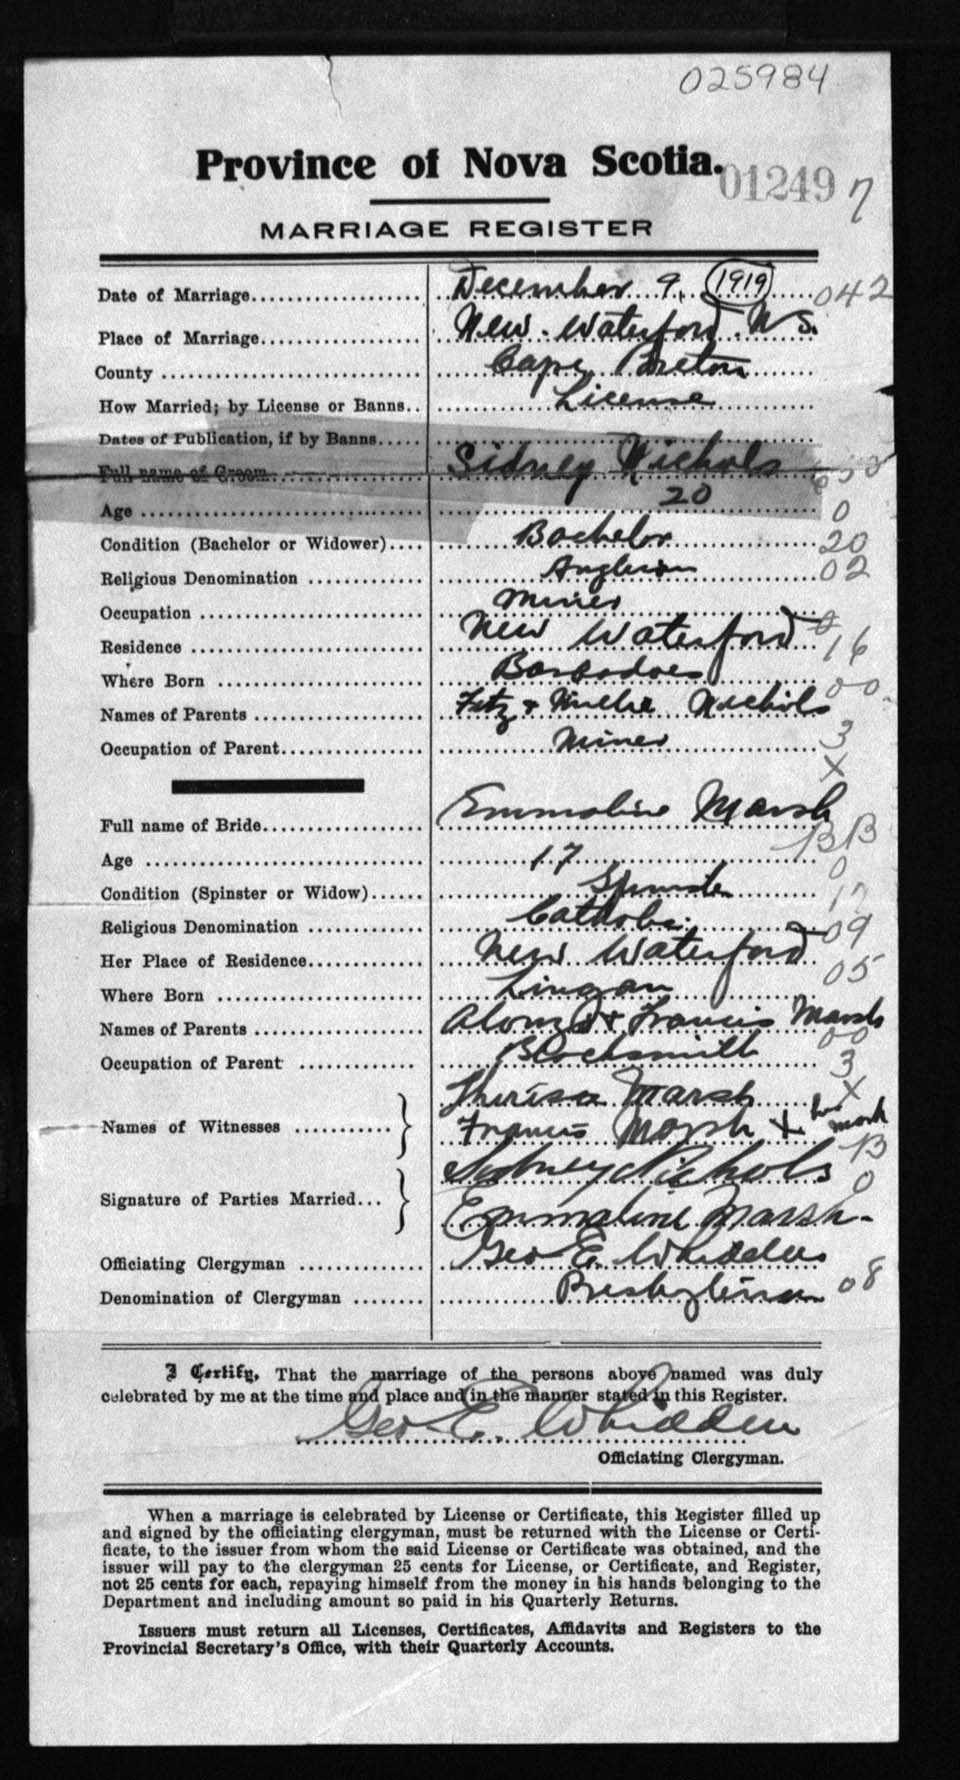 025984
Province of Nova Scotia.
01249 7
MARRIAGE REGISTER
Date of Marriage.................... December 9, 1919 042
Place of Marriage.................... New Waterford N S.
County .............................. Cape Breton
How Married; by License or Banns.. License
Dates of Publication, if by Banns.....
Full name of Groom.................. Sidney Nichols
Age ................................ 20 0
Condition (Bachelor or Widower).... Bachelor 20
Religious Denomination ............ 02
Occupation ........................ Miner
Residence ......................... New Waterford 16
Where Born ....................... Barbadoes 00
Names of Parents ................. Fitz & Millie Nichols
Occupation of Parent.............. Miner 3
X
Full name of Bride................. Emmaline Marsh
BB
Age ............................... 17 0
Condition (Spinster or Widow)...... Spinster 17
Religious Denomination ............ Catholic 09
Her Place of Residence............. New Waterford
Where Born ....................... Lingan 05
Names of Parents ................. Alonzo & Francis Marsh
00
Occupation of Parent ............. Blacksmith 3
X
Names of Witnesses ........... } Theresa Marsh
Francis Marsh X her mark
B
Signature of Parties Married... } Sydney Nichols 0
Emmaline Marsh.
Officiating Clergyman ............. Geo E. Whidden
Denomination of Clergyman ........ Presbyterian 08
I Certify, That the marriage of the persons above named was duly
celebrated by me at the time and place and in the manner stated in this Register.
Geo E. Whidden
Officiating Clergyman.
When a marriage is celebrated by License or Certificate, this Register filled up
and signed by the officiating clergyman, must be returned with the License or Certi-
ficate, to the issuer from whom the said License or Certificate was obtained, and the
issuer will pay to the clergyman 25 cents for License, or Certificate, and Register,
not 25 cents for each, repaying himself from the money in his hands belonging to the
Department and including amount so paid in his Quarterly Returns.
Issuers must return all Licenses, Certificates, Affidavits and Registers to the
Provincial Secretary's Office, with their Quarterly Accounts.